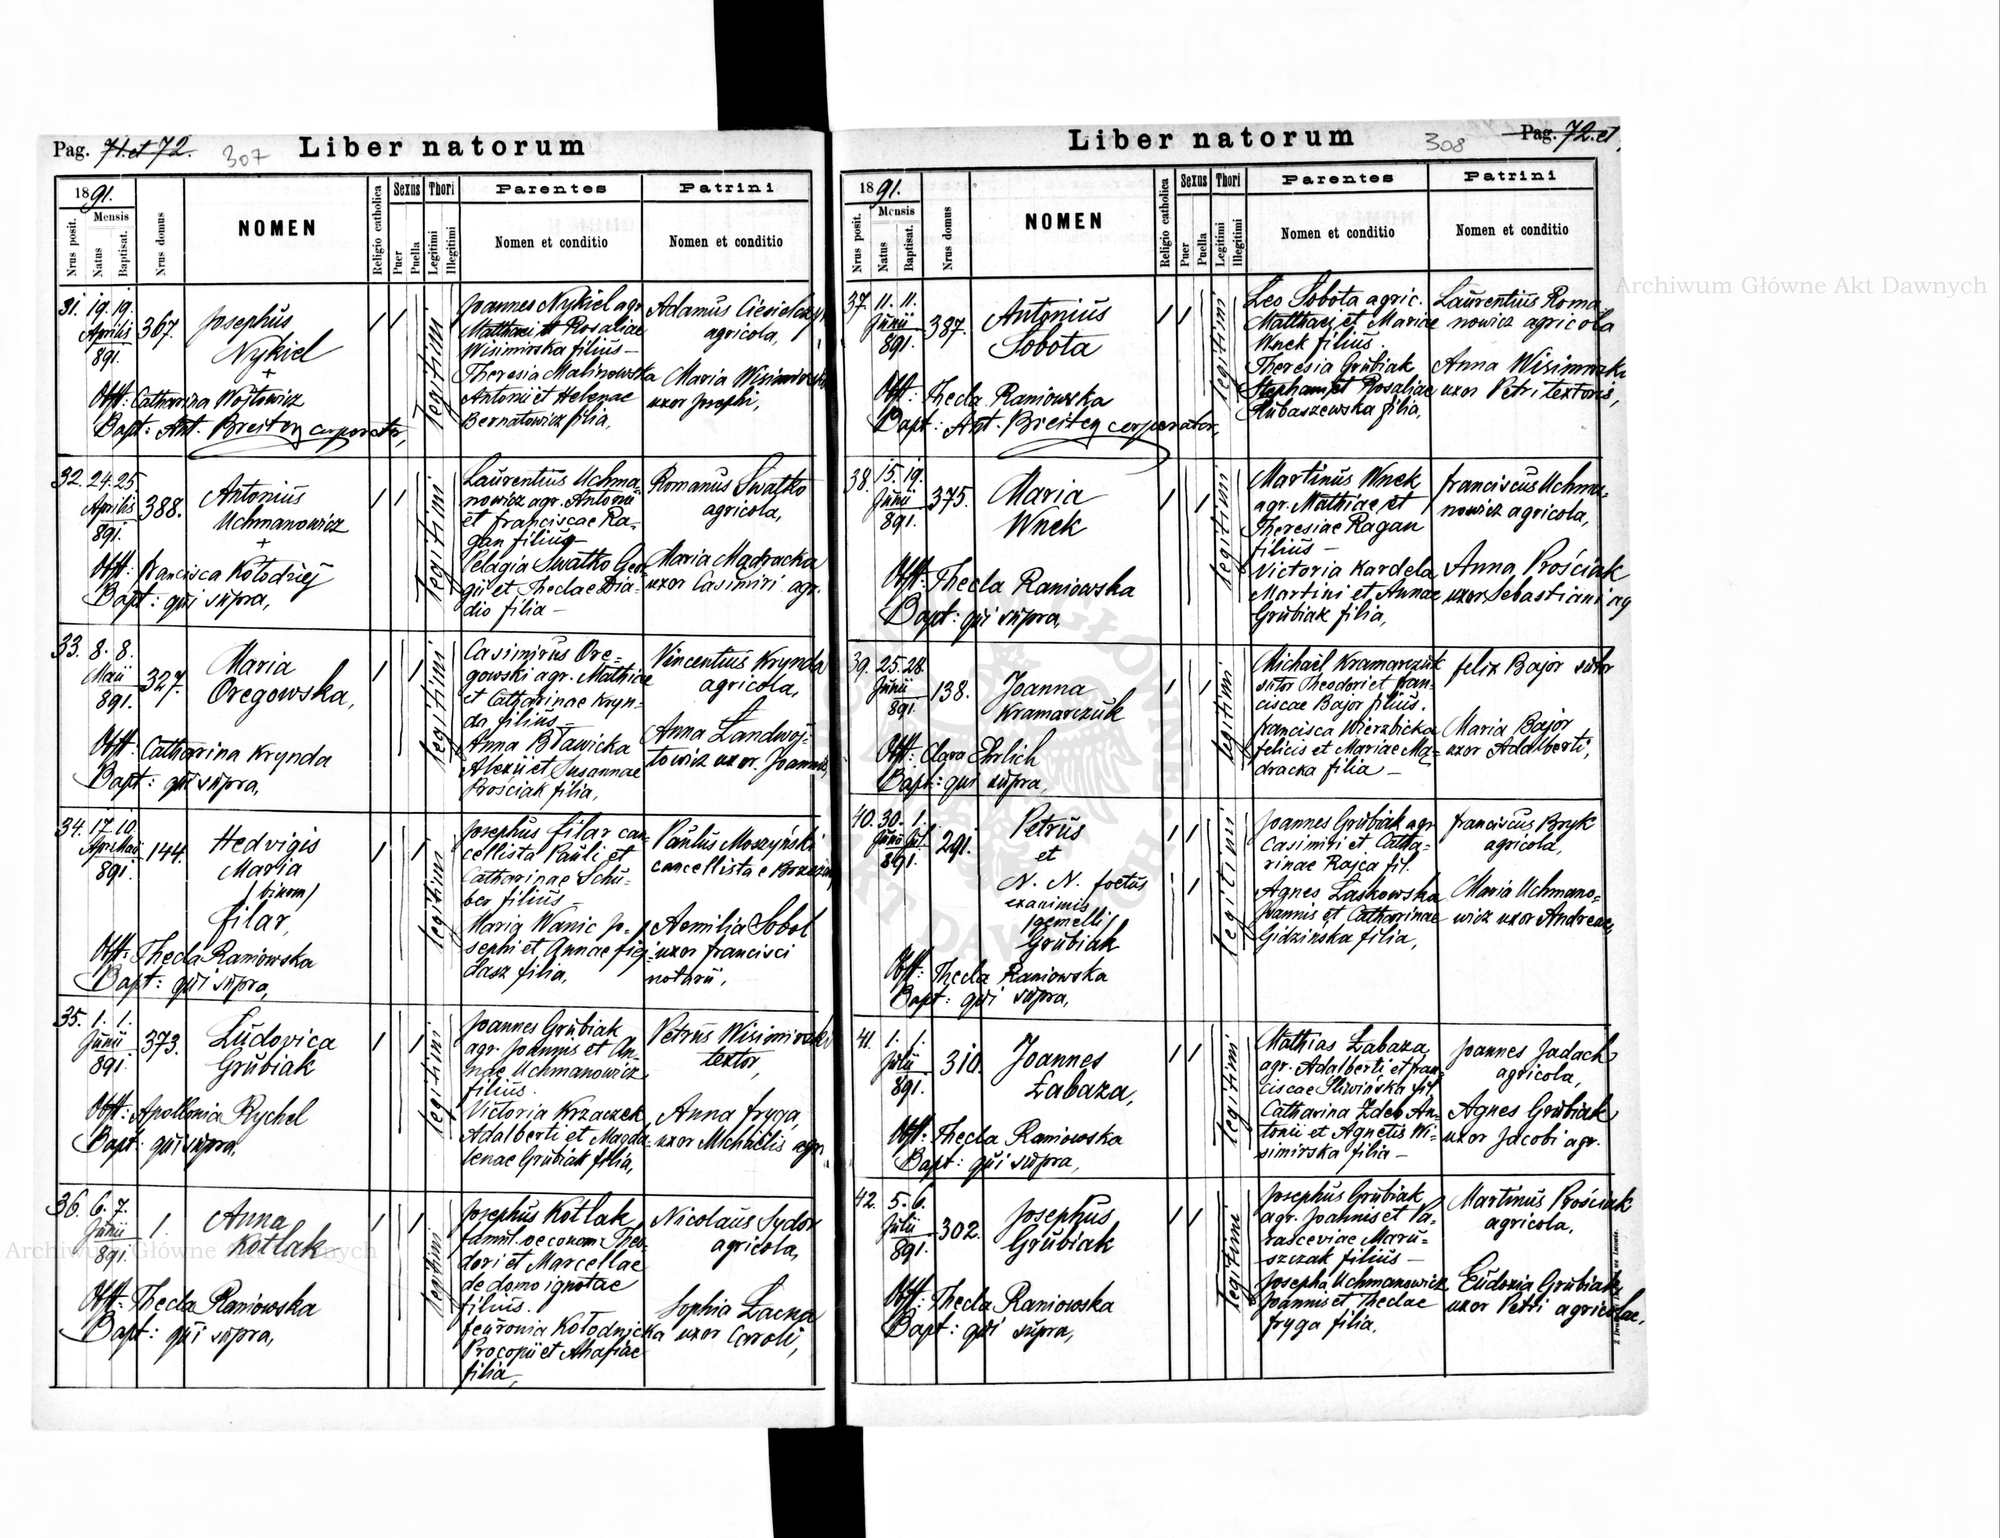 Pag. 71. et 72.
307
Liber natorum
1891.
Nrus posit.
Mensis
Natus
Baptisat.
Nrus domus
NOMEN
Religio catholica
Sexus
Puer
Puella
Thori
Legitimi
Illegitimi
Parentes
Nomen et conditio
Patrini
Nomen et conditio
31. 19. 19.
Aprilis
891.
367.
Josephus
Nykiel
+
Obst: Catharina Wojtowicz
Bapt: Ant. Breiten cooperator,
1 1
legitimi
Joannes Nykiel agr.
Matthaei et Rosaliae
Wisimirska filius –
Theresia Malinowska
Antonii et Helenae
Bernatowicz filia,
Adamus Ciesielczyk
agricola,
Maria Wisimirska
uxor Josephi,
32. 24. 25.
Aprilis
891.
388.
Antonius
Uchmanowicz
+
Obst: Francisca Kołodziej
Bapt: qui supra,
1 1
legitimi
Laurentius Uchma-
nowicz agr. Antonii
et Franciscae Ra-
gan filius –
Pelagia Swatko Geor-
gii et Theclae Dia-
dio filia –
Romanus Swatko
agricola,
Maria Mądracka
uxor Casimiri agr.
33. 8. 8.
Maii
891.
327.
Maria
Oregowska,
Obst: Catharina Krynda
Bapt: qui supra,
1 1
legitimi
Casimirus Ore-
gowski agr. Mathiae
et Catharinae Kryn-
da filius –
Anna Bławicka
Alexii et Susannae
Prościak filia,
Vincentius Krynda
agricola,
Anna Landwoj-
towicz uxor Joannis,
34. 17. 10.
Apr. Maii
891.
144.
Hedvigis
Maria
/binom/
Filar,
Obst: Thecla Raniowska
Bapt: qui supra,
1 1
legitimi
Josephus Filar can-
cellista Pauli et
Catharinae Schu-
ber filius –
Maria Wanic Jo-
sephi et Annae Fig-
lasz filia,
Paulus Moszyński
cancellista e
Aemilia Sobol
uxor Francisci
notarii,
35. 1. 1.
Junii
891.
373.
Ludovica
Grubiak
Obst: Apollonia Rychel
Bapt: qui supra,
1 1
legitimi
Joannes Grubiak
agr. Joannis et An-
nae Uchmanowicz
filius.
Victoria Krzaczek
Adalberti et Magda-
lenae Grubiak filia,
Petrus Wisimirski
textor,
Anna Fryga,
uxor Michaelis agr.
36. 6. 7.
Junii
891.
1.
Anna
Kotlak
Obst: Thecla Raniowska
Bapt: qui supra,
1 1
legitimi
Josephus Kotlak
famul. oeconom. Theo-
dori et Marcellae
de domo ignotae
filius.
Feuronia Kołodnicka
Procopii et Anafiae
filia,
Nicolaus Sydor
agricola,
Sophia Łacna
uxor Caroli,
Liber natorum
308
Pag. 72. et
1891.
Nrus posit.
Mensis
Natus
Baptisat.
Nrus domus
NOMEN
Religio catholica
Sexus
Puer
Puella
Thori
Legitimi
Illegitimi
Parentes
Nomen et conditio
Patrini
Nomen et conditio
37. 11. 11.
Junii
891.
387.
Antonius
Sobota
Obst: Thecla Raniowska
Bapt: Ant. Breiten cooperator,
1 1
legitimi
Leo Sobota agric.
Matthaei et Mariae
Wnek filius.
Theresia Grubiak
Stephani et Rosaliae
Rubaszewska filia,
Laurentius Roma-
nowicz agricola
Anna Wisimirska
uxor Petri textoris,
38. 15. 19.
Junii
891.
375.
Maria
Wnek
Obst: Thecla Raniowska
Bapt: qui supra,
1 1
legitimi
Martinus Wnek
agr. Mathiae et
Theresiae Ragan
filius –
Victoria Kardela
Martini et Annae
Grubiak filia,
Franciscus Uchma-
nowicz agricola,
Anna Prościak
uxor Sebastiani ag
39. 25. 28.
Junii
891.
138.
Joanna
Kramarczuk
Obst: Clara Ehrlich
Bapt: qui supra,
1 1
legitimi
Michaël Kramarczuk
sutor Theodori et Fran-
ciscae Bajor filius.
Francisca Wierzbicka
Felicis et Mariae Mą-
dracka filia –
Felix Bajor sutor
Maria Bajor
uxor Adalberti,
40. 30. 1.
Junii Jul.
891.
291.
Petrus
et
N. N. foetus
exanimis
/gemelli/
Grubiak
Obst: Thecla Raniowska
Bapt: qui supra,
1 1
1
legitimi
Joannes Grubiak agr
Casimiri et Catha-
rinae Rajca fil.
Agnes Laskowska
Joannis et Catharinae
Gidzińska filia,
Franciscus Bryk
agricola,
Maria Uchmano-
wicz uxor Andreae,
41. 1. 1.
Julii
891.
310.
Joannes
Łabaza,
Obst: Thecla Raniowska
Bapt: qui supra,
1 1
legitimi
Mathias Łabaza
agr. Adalberti et Fran-
ciscae Śliwińska fil.
Catharina Zdeb An-
tonii et Agnetis Wi-
simirska filia –
Joannes Jadach
agricola,
Agnes Grubiak
uxor Jacobi agr.
42. 5. 6.
Julii
891.
302.
Josephus
Grubiak
Obst: Thecla Raniowska
Bapt: qui supra,
1 1
legitimi
Josephus Grubiak
agr. Joannis et Pa-
rasceviae Maru-
szczak filius –
Josepha Uchmanowicz
Joannis et Theclae
Fryga filia,
Martinus Prościak
agricola,
Eudoxia Grubiak,
uxor Petri agricolae,
Archiwum Główne Akt Dawnych
Archiwum Główne Akt Dawnych